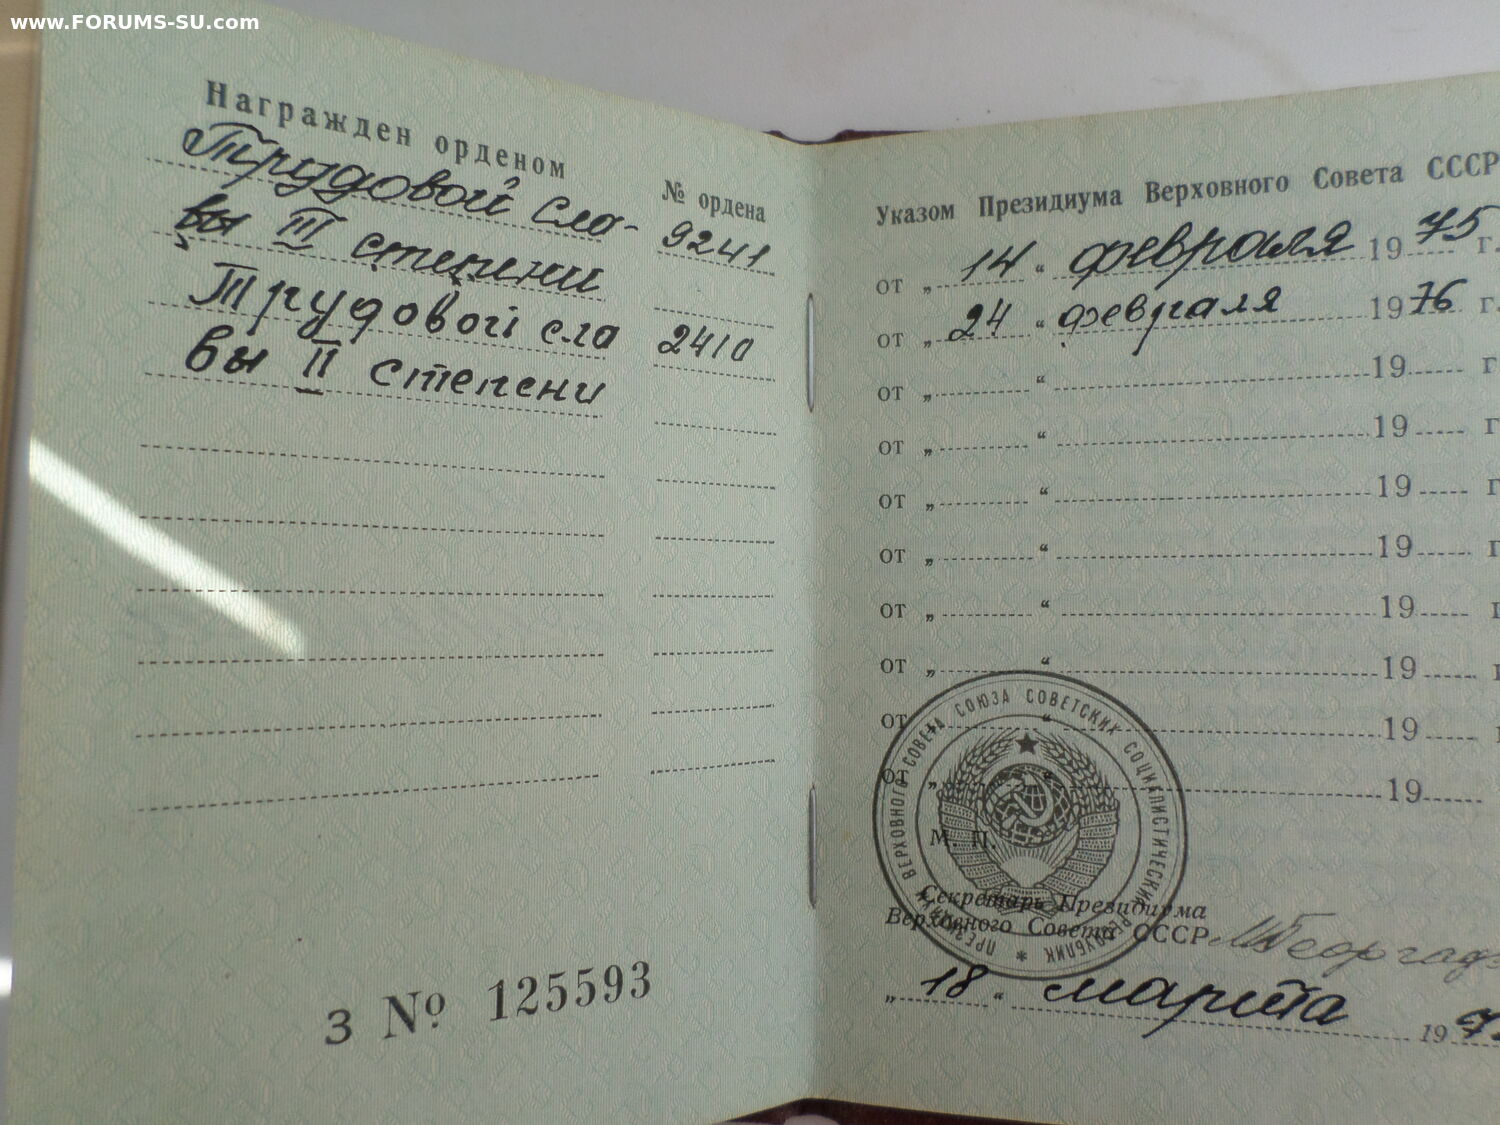 www.FORUMS-SU.com
Награжден орденом
№ ордена
Трудовой сла-
9241
вы III степени
Трудовой сла
2410
вы II степени
З № 125593
Указом Президиума Верховного Совета СССР
от „ 14 “ февраля 1975 г.
от „ 24 “ февраля 1976 г.
от „ “ 19 г
от „ “ 19 г
от „ “ 19 г
от „ “ 19 г
от „ “ 19
от „ “ 19
от „ “ 19
от „ “ 19
ПРЕЗИДИУМ ВЕРХОВНОГО СОВЕТА СОЮЗА СОВЕТСКИХ СОЦИАЛИСТИЧЕСКИХ РЕСПУБЛИК
М. П.
Секретарь Президиума
Верховного Совета СССР
„ 18 “ марта 19